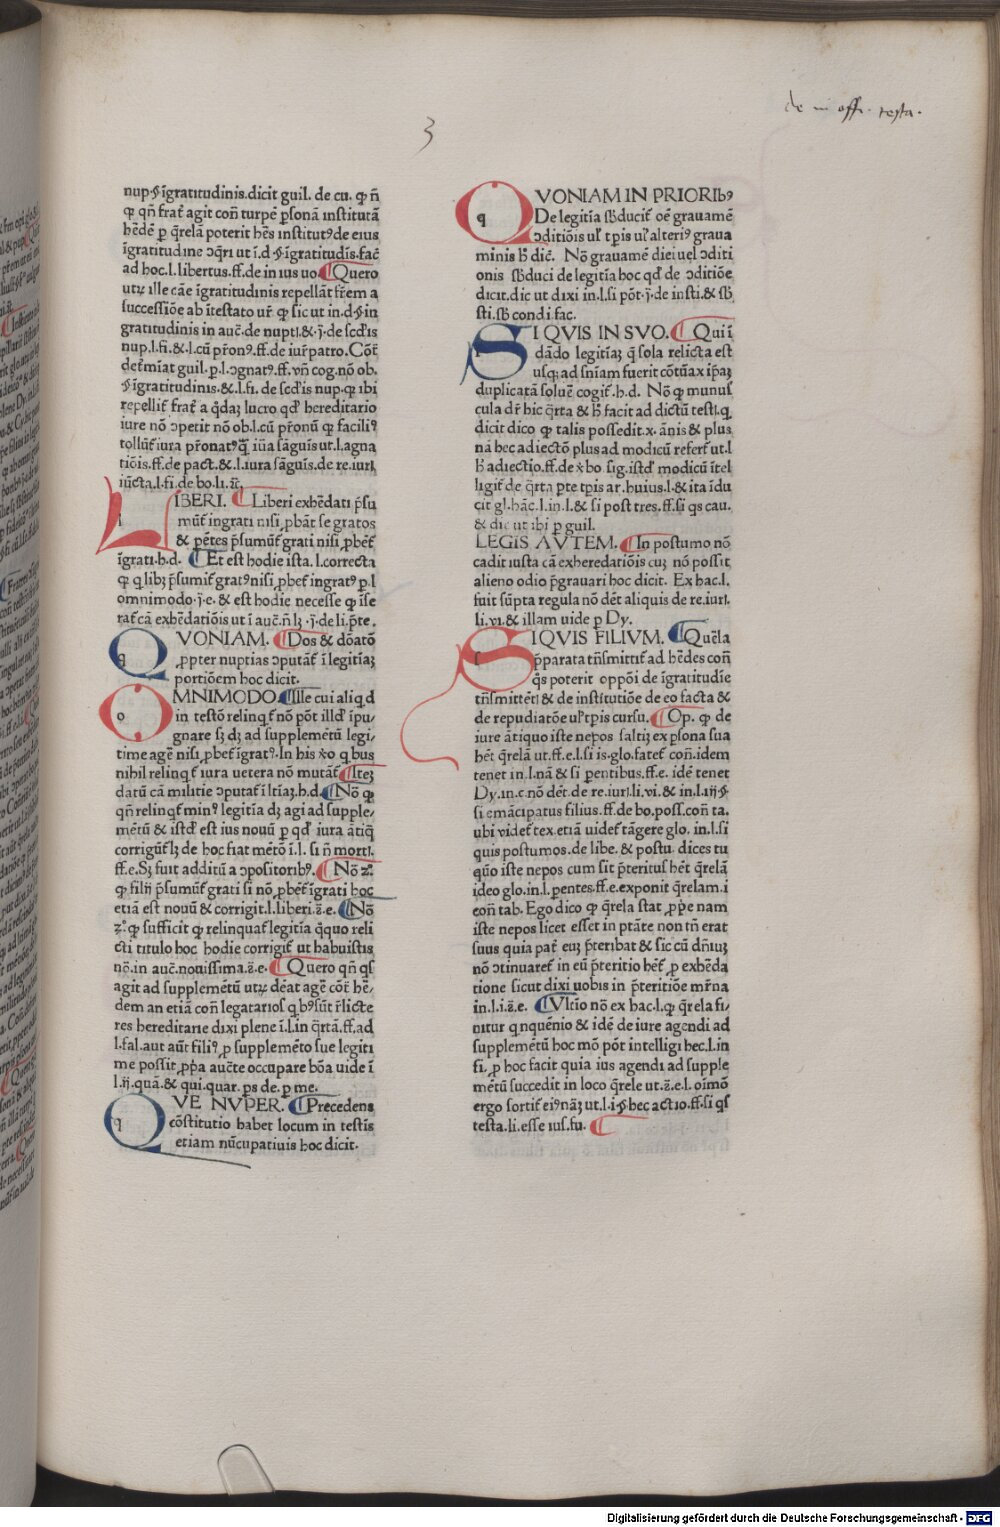 de in offi. testa.
3
nup.§ ĩgratitudinis.dicit guil. de cu. ꝙ ñ
ꝙ qñ frat̃ agit con̄ turpē ꝑsonā institutā
hēdē ꝑ q̃relā poterit hēs institutꝰ de eius
ĩgratitudine ɔq̃ri ut ĩ.d.§.ĩgratitudis.fac̃
ad hoc.l.libertus.ff.de in ius uo. Quero
utꝝ ille cãe ĩgratitudinis repellãt fr̃em a
successiõe ab ĩtestato ur̃ ꝙ sic ut in.d.§.in
gratitudinis in auc̃.de nuptĩ.&.j.de scd̃is
nup.l.fi.&.l.cū pr̃onꝰ.ff.de iur̃ patro.Cõt̃
det̃miat guil.ꝑ.l.ɔgnatꝰ.ff.vñ cog.nõ ob.
§ ĩgratitudinis.&.l.fi.de scd̃is nup.ꝙ ibi
repellit̃ frat̃ a q̃daꝫ lucro qd̃ hereditario
iure nõ ɔpetit nõ ob.l.cū pr̃onū ꝙ faciliꝰ
tollūt̃ iura pr̃onatꝰ q̃ iũa sãguis ut.l.agna
tiõis.ff.de pact.&.l.iura sãguis.de re.iurĩ.
iũcta.l.fi.de bo.li.
LIBERI. Liberi exhēdati p̃su
mūt̃ ingrati nisi ,pbãt se gratos
& pētes p̃sumūt̃ grati nisi ,pbet̃
ĩgrati.h.d. Et est hodie ista.l.correcta
ꝙ q libꝫ p̃sumit̃ gratꝰ nisi ,pbet̃ ingratꝰ ꝑ.l
omnimodo.j.e. & est hodie necesse ꝙ ĩse
rat̃ cã exhēdatiõis ut ĩ auc̃.ñ lꝫ .j.de li.p̃te.
QVONIAM. Dos & dõatõ
,ppter nuptias ɔputat̃ ĩ legitiaꝫ
portiõem hoc dicit.
OMNIMODO. Ille cui aliq d
in testõ relinq̃t̃ nõ põt illd̃ ĩpu/
gnare sꝫ dꝫ ad supplemētū legi/
time agē nisi ,pbet̃ ĩgratꝰ. In his xo q bus
nihil relinq̃t̃ iura uetera nõ mutãt̃ Iteꝫ
datū cã militie ɔputat̃ ĩ ltiaꝫ.h.d. Nõ ꝙ
qñ relinqt̃ minꝰ legitia dꝫ agi ad supple/
mētū & istd̃ est ius nouū ꝑ qd̃ iura ãtiq̃
corrigūt̃ lꝫ de hoc fiat mētõ ĩ.l.si ñ mortĩ.
ff.e.Sꝫ fuit additū a ɔpositoribꝰ. Nõ
ꝙ filij p̃sumūt̃ grati si nõ ,pbet̃ ĩgrati hoc
etiã est nouū & corrigit.l.liberi.ƺ.e. Nõ
ꝙ sufficit ꝙ relinquat̃ legitia q̃quo reli
cti titulo hoc hodie corrigit̃ ut habuistis
nõ.in auc̃.nouissima.ƺ.e. Quero qñ qs
agit ad supplemētū utꝝ dēat agē cõt̃ hē/
dem an etiã con̄ legatarios q bꝰ sūt r̃licte
res hereditarie dixi plene ĩ.l.in q̃rtã.ff.ad
l.fal.aut aūt filiꝰ ,p supplemēto sue legiti
me possit ,pp̃a auc̃te occupare bõa uide ĩ
l.ij.quã.& qui.quar.ps de.ꝑ me.
QVE NVPER. Precedens
cõstitutio habet locum in testis
etiam nūcupatiuis hoc dicit.
QVONIAM IN PRIORIbꝰ
De legitĩa sb̃ducit̃ oē grauamē
ɔditiõis ul̃ tp̃is ul̃ alteriꝰ graua
minis h̃ dic̃. Nõ grauamē diei uel ɔditi
onis sb̃duci de legitĩa hoc qd̃ de ɔditiõe
dicit.dic ut dixi in.l.si põt.j.de insti.& sb̃
sti.sb̃ condi.fac.
SIQVIS IN SVO. Qui ĩ
dãdo legitĩaꝫ q̃ sola relicta est
usqꝫ ad sñiam fuerit cõtũax ip̃aꝫ
duplicatã soluē cogit̃.h.d. Nõ ꝙ munus
cula dr̃ hic q̃rta & h̃ facit ad dictū testĩ.q
dicit dico ꝙ talis possedit.x.ãnis & plus
nã hec adiectõ plus ad modicū refert̃ ut.l
h̃ adiectio.ff.de x̃bo sig.istd̃ modicū ĩtel
ligit̃ de q̃rta p̃te tp̃is ar.huius.l.& ita ĩdu
cit gl.hãc.l.in.l.& si post tres.ff.si qs cau.
& dic ut ibi ꝑ guil.
LEGIS AVTEM. In postumo nõ
cadit iusta cã exheredatiõis cuꝫ nõ possit
alieno odio p̃grauari hoc dicit. Ex hac.l.
fuit sūpta regula nõ dēt aliquis de re.iurĩ.
li.vi.& illam uide ꝑ Dy.
SIQVIS FILIVM. Quēla
p̃parata tñsmittit̃ ad hēdes con̄
q̃s poterit oppõi de ĩgratitudie
tñsmittētĩ & de institutiõe de eo facta &
de repudiatõe ul̃ tp̃is cursu. Op. ꝙ de
iure ãtiquo iste nepos saltiꝫ ex ꝑsona sua
hēt q̃relã ut.ff.e.l.si is.glo.fatet̃ con̄.idem
tenet in.l.nã & si ꝑentibus.ff.e. idē tenet
Dy.in.c.nõ dēt.de re.iurĩ.li.vi.& in.l.iij.§
si emãcipatus filius.ff.de bo.poss.con̄.ta.
ubi videt̃ tex.etiã uidet̃ tãgere glo. in.l.si
quis postumos.de libe.& postu. dices tu
quõ iste nepos cum sit p̃teritus hēt q̃relã
ideo glo.in.l.ꝑentes.ff.e.exponit q̃relam.i
con̄ tab. Ego dico ꝙ q̃rela stat ,pp̃e nam
iste nepos licet esset in ptãte non tñ erat
suus quia pat̃ euꝫ p̃teribat & sic cū dñiuꝫ
nõ ɔtinuaret̃ in eū p̃teritio hēt̃ ,p exhēda
tione sicut dixi uobis in p̃teritiõe mr̃na
in.l.i.ƺ.e. Vltĩo nõ ex hac.l.ꝙ q̃rela fi/
nitur q nquēnio & idē de iure agendi ad
supplemētū hoc mõ põt intelligi hec.l.in
fi.,p hoc facit quia ius agendi ad supple
mētū succedit in loco q̃rele ut.ƺ.e.l.oĩmõ
ergo sortit̃ eiꝰ nãꝫ ut.l.i.§ hec actio.ff.si qs
testa.li.esse ius.fu.
Digitalisierung gefördert durch die Deutsche Forschungsgemeinschaft - DFG